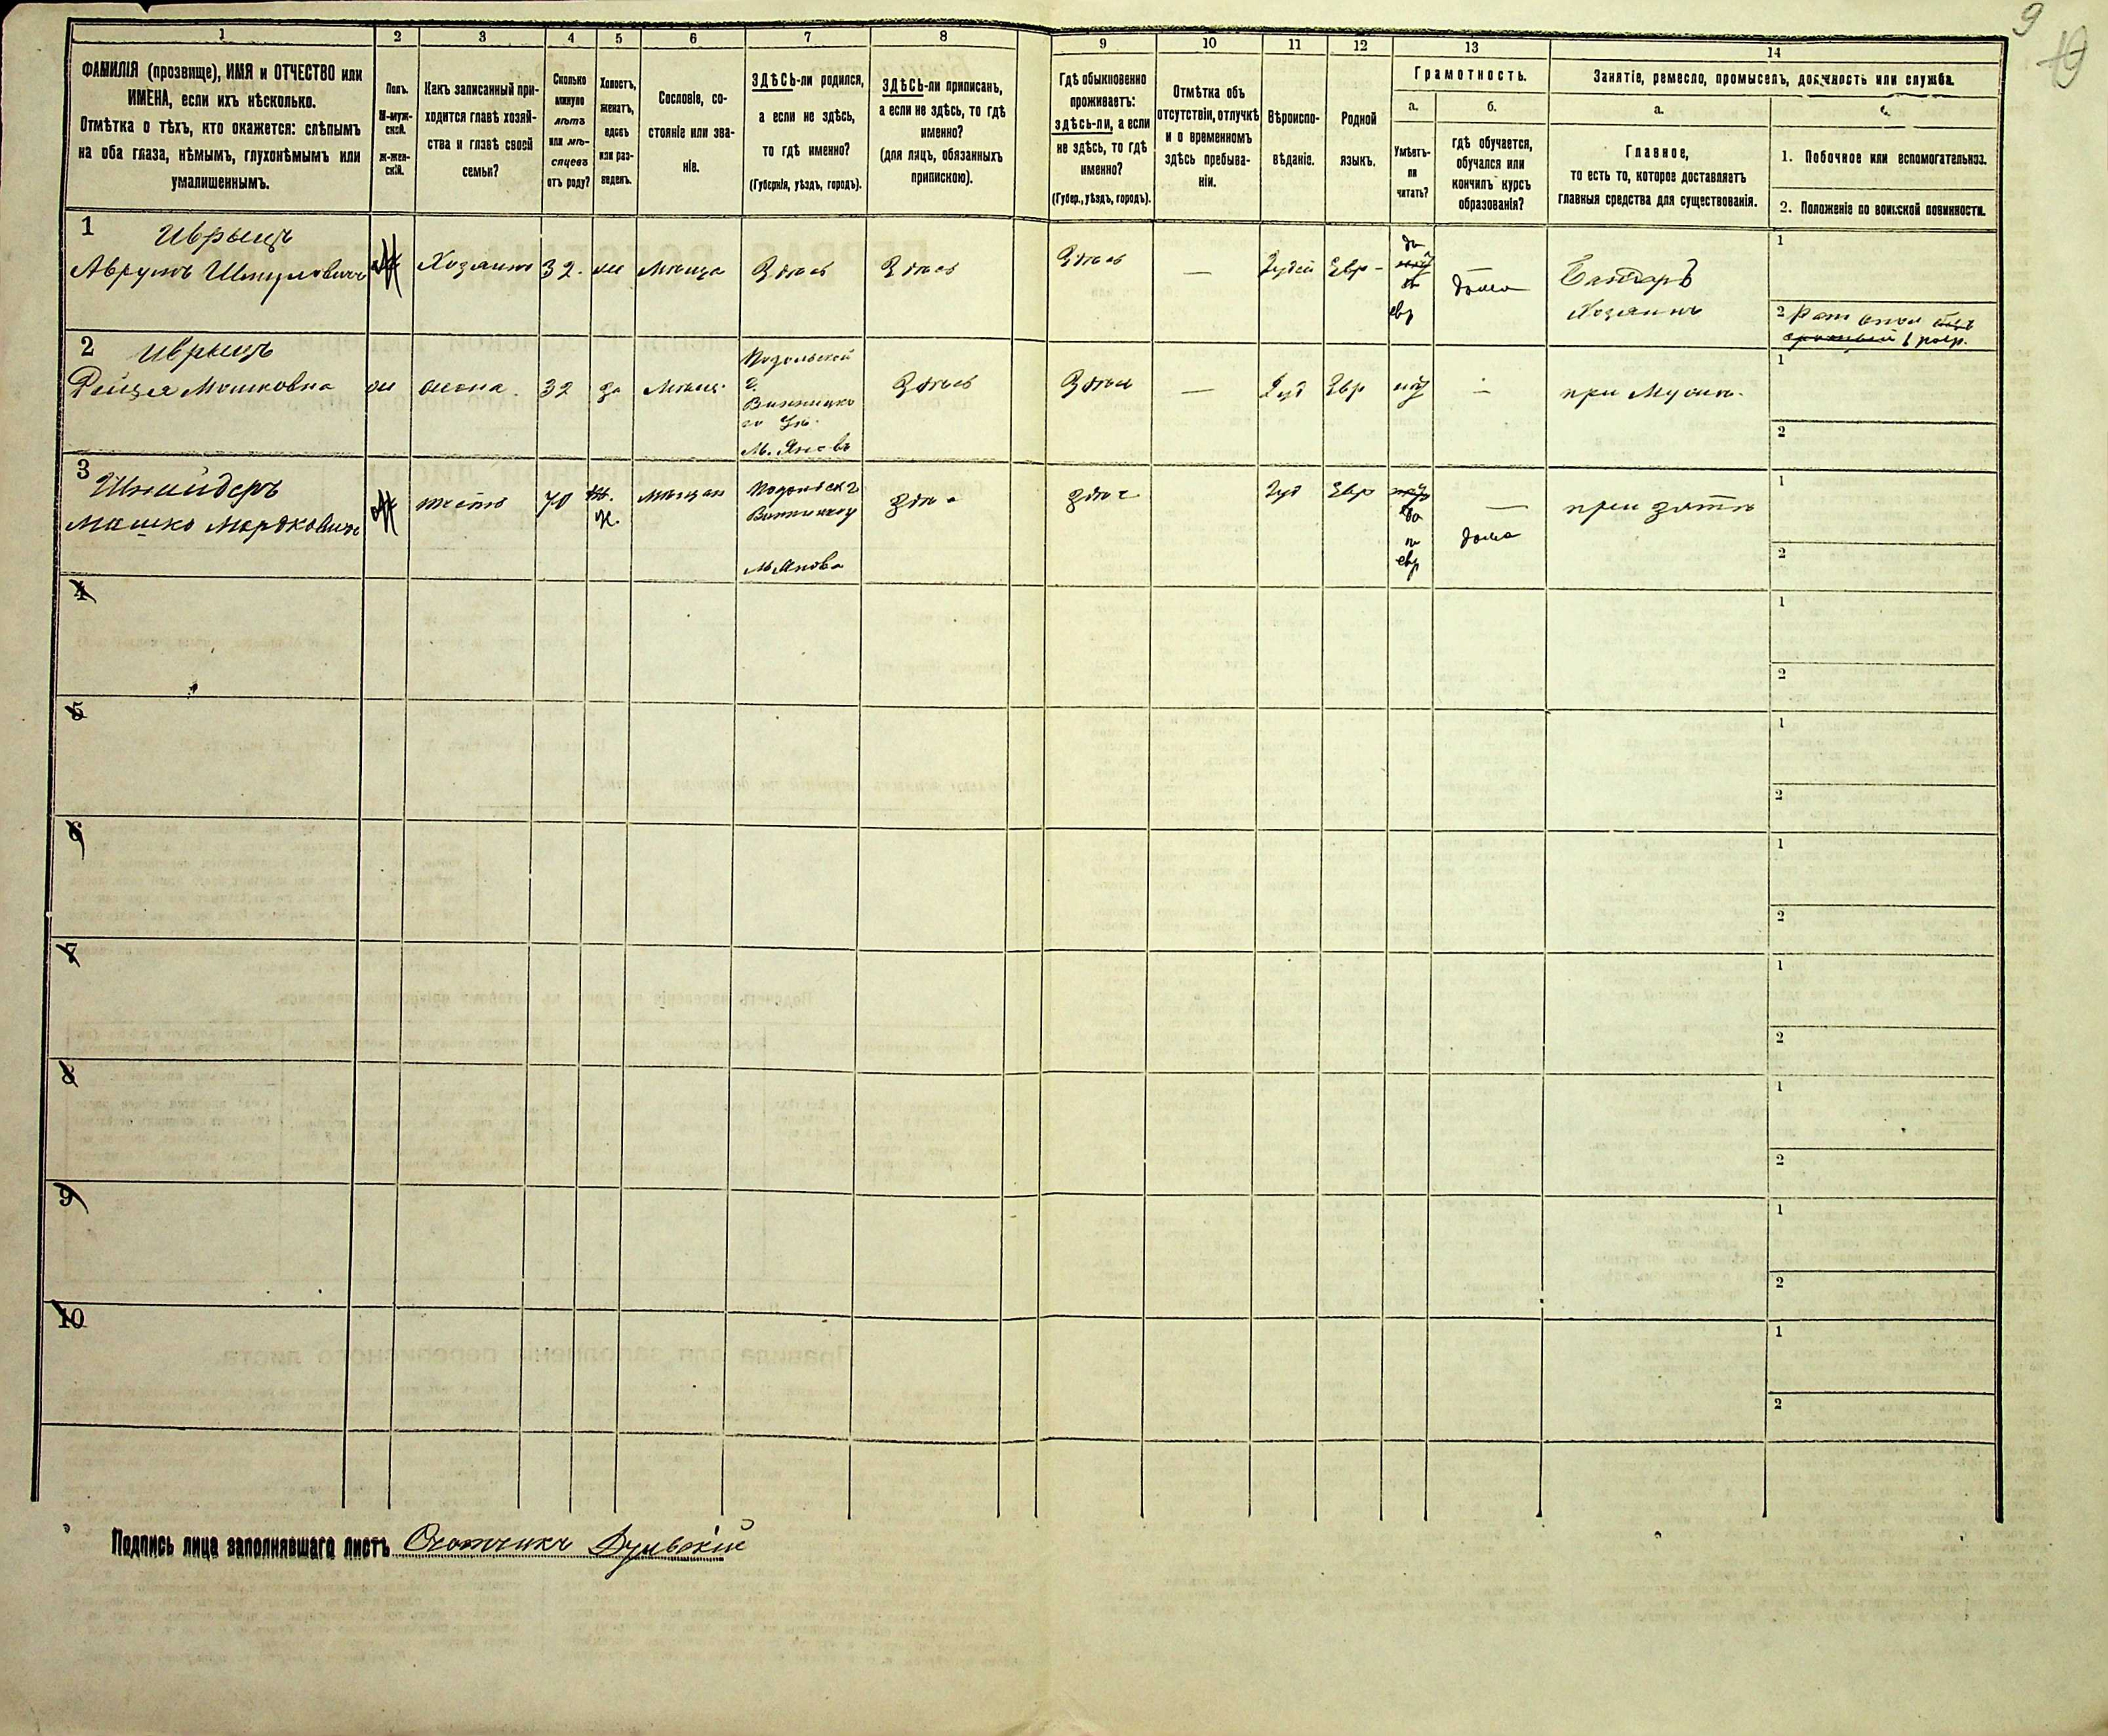 9
19
1
2
3
4
5
6
7
8
9
10
11
12
13
14
ФАМИЛІЯ (прозвище), ИМЯ и ОТЧЕСТВО или
ИМЕНА, если ихъ нѣсколько.
Отмѣтка о тѣхъ, кто окажется: слѣпымъ
на оба глаза, нѣмымъ, глухонѣмымъ или
умалишеннымъ.
Полъ.
М-муж-
ской.
Ж-жен-
скій.
Какъ записанный при-
ходится главѣ хозяй-
ства и главѣ своей
семьи?
Сколько
минуло
лѣтъ
или мѣ-
сяцевъ
отъ роду?
Холостъ,
женатъ,
вдовъ
или раз-
веденъ.
Сословіе, со-
стояніе или зва-
ніе.
ЗДѢСЬ-ли родился,
а если не здѣсь,
то гдѣ именно?
(Губернія, уѣздъ, городъ).
ЗДѢСЬ-ли приписанъ,
а если не здѣсь, то гдѣ
именно?
(для лицъ, обязанныхъ
припискою).
Гдѣ обыкновенно
проживаетъ:
здѣсь-ли, а если
не здѣсь, то гдѣ
именно?
(Губер., уѣздъ, городъ).
Отмѣтка объ
отсутствіи, отлучкѣ
и о временномъ
здѣсь пребыва-
ніи.
Вѣроиспо-
вѣданіе.
Родной
языкъ.
Грамотность.
а.
Умѣетъ-
ли
читать?
б.
гдѣ обучается,
обучался или
кончилъ курсъ
образованія?
Занятіе, ремесло, промыселъ, должность или служба.
а.
Главное,
то есть то, которое доставляетъ
главныя средства для существованія.
1. Побочное или вспомогательное.
2. Положеніе по воинской повинности.
1
Иврыцъ
Аврумъ Шмуловичъ
М
Хозяинъ
32.
Мѣща
Здѣсь
Здѣсь
Здѣсь
—
Іудей
Евр-
да
евр
дома
Хозяинъ
1
2
2
Иврыцъ
Рейзя Мошковна
ж
жена
32
за
Мѣщ.
Подольской
г.
Винницко
го Уѣ.
М. Яновъ
Здѣсь
Здѣсь
—
Іуд
Евр
нѣт
при Мужѣ.
1
2
3
Шнайдеръ
Мошко Мордковичъ
М
тесть
70
ж.
Мѣщан
Подольск г
Винницк у
М Янова
Здѣс
Здѣс
Іуд
Евр
да
п
евр
—
дома
при зятѣ
1
2
4
1
2
5
1
2
6
1
2
7
1
2
8
1
2
9
1
2
10
1
2
Подпись лица заполнявшаго листъ